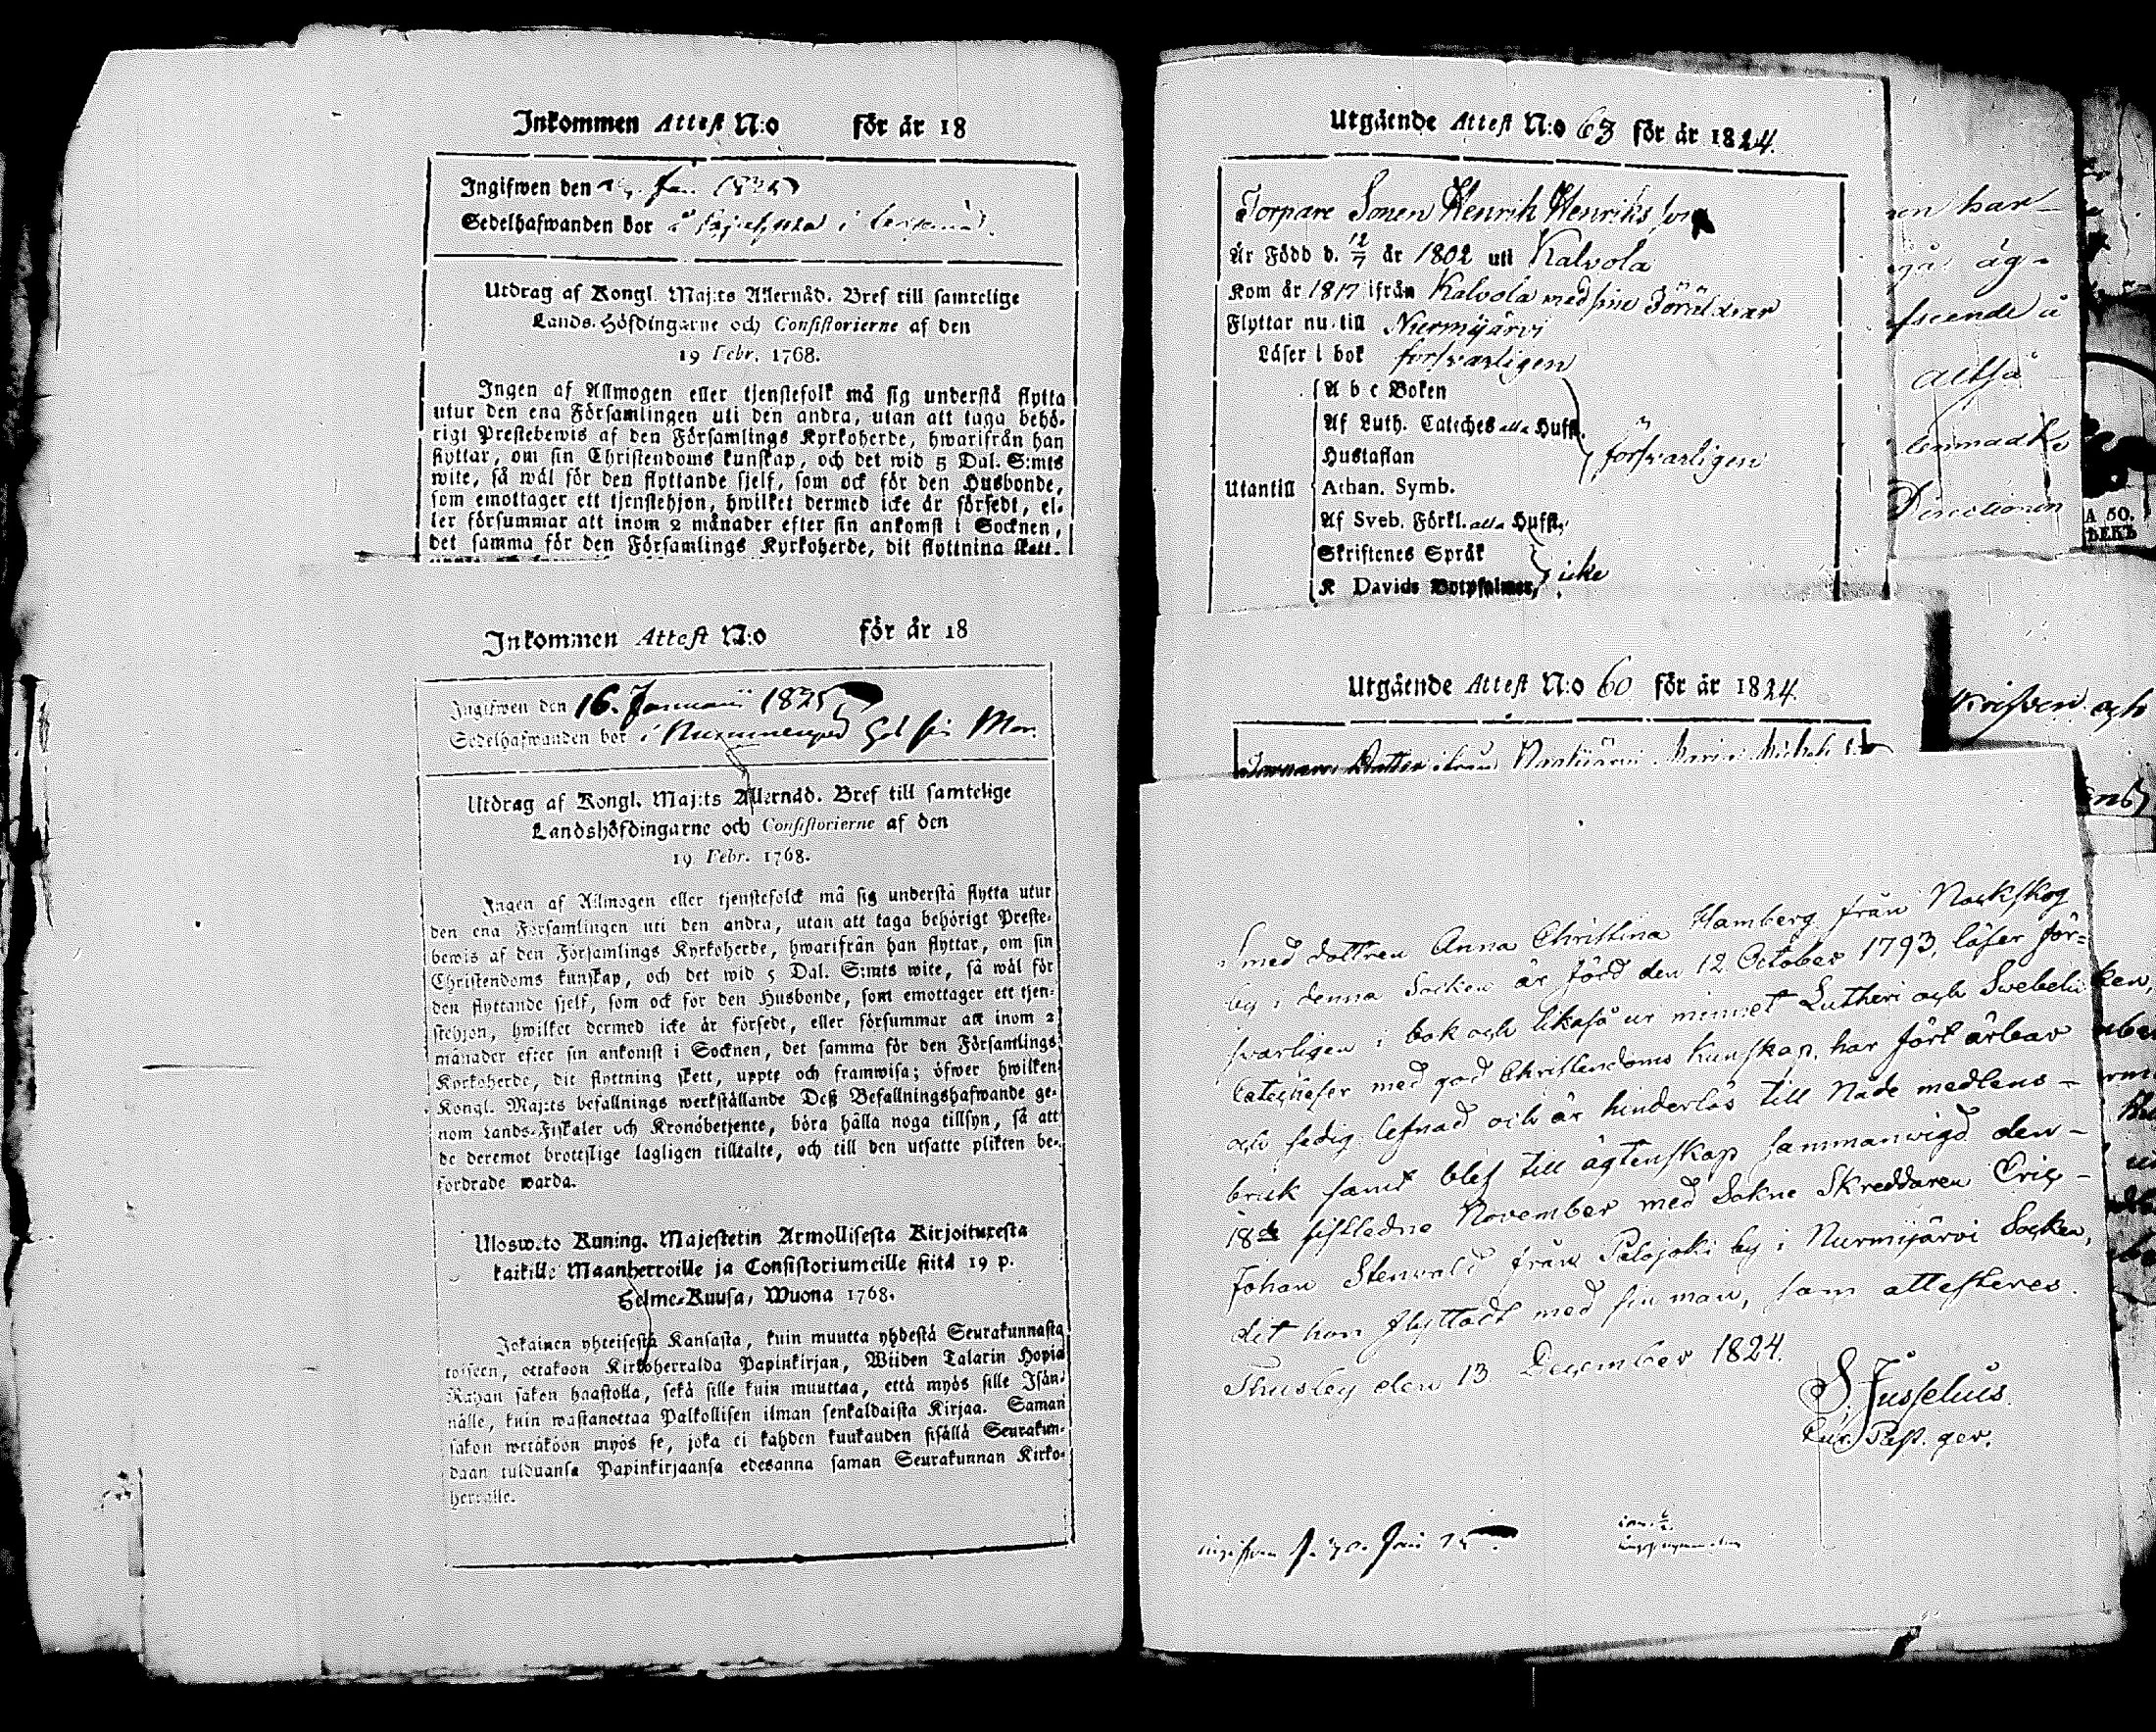 Inkommen Attest N:o för år 18
Ingifwen den Jan. 1825
Sedelhafwanden bor å i
Utdrag af Kongl. Maj:ts Allernåd. Bref till samtelige
Lands-Höfdingarne och Consistorierne af den
19 Febr. 1768.
Ingen af Allmogen eller tjenstefolk må sig understå flytta
utur den ena Församlingen uti den andra, utan att taga behö-
rigt Prestebewis af den Församlings Kyrkoherde, hwarifrån han
flyttar, om sin Christendoms kunskap, och det wid 5 Dal. S:mts
wite, så wäl för den flyttande sjelf, som ock för den Husbonde,
som emottager ett tjenstehjon, hwilket dermed icke är försedt, el-
ler försummar att inom 2 månader efter sin ankomst i Socknen,
det samma för den Församlings Kyrkoherde, dit flyttning skett.
Inkommen Attest N:o för år 18
Ingifwen den 16. Januarii 1825
Sedelhafwanden bor i hos sin Mor.
Utdrag af Kongl. Maj:ts Allernåd. Bref till samtelige
Landshöfdingarne och Consistorierne af den
19 Febr. 1768.
Ingen af Allmogen eller tjenstefolck må sig understå flytta utur
den ena Församlingen uti den andra, utan att taga behörigt Preste-
bewis af den Församlings Kyrkoherde, hwarifrån han flyttar, om sin
Christendoms kunskap, och det wid 5 Dal. S:mts wite, så wäl för
den flyttande sjelf, som ock for den Husbonde, som emottager ett tjen-
stehjon, hwilket dermed icke är försedt, eller försummar att inom 2
månader efter sin ankomst i Socknen, det samma för den Församlings
Kyrkoherde, dit flyttning skett, uppte och framwisa; öfwer hwilken
Kongl. Maj:ts befallnings werkställande Deß Befallningshafwande ge-
nom Lands-Fiskaler och Kronobetjente, böra hålla noga tillsyn, så att
de deremot brottslige lagligen tilltalte, och till den utsatte plikten be-
fordrade warda.
Ulosweto Kuning. Majestetin Armollisesta Kirjoituxesta
kaikille Maanherroille ja Consistoriumeille siitä 19 p.
Helme-Kuusa, Wuona 1768.
Jokainen yhteisestä Kansasta, kuin muutta yhdestä Seurakunnasta
toiseen, ottakoon Kirkoherralda Papinkirjan, Wiiden Talarin Hopia
Rahan sakon haastolla, sekä sille kuin muuttaa, että myös sille Isän-
nälle, kuin wastanottaa Palkollisen ilman senkaldaista Kirjaa. Saman
sakon wetäköön myös se, joka ei kahden kuukauden sisällä Seurakun-
daan tulduansa Papinkirjaansa edesanna saman Seurakunnan Kirko-
herralle.
Utgående Attest N:o 63 för år 1824.
Torpare Sonen Henrik Henriksson
Är Född d. 12/7 år 1802 uti Kalvola
Kom år 1817 ifrån Kalvola med sine Föräldrar
Flyttar nu till Nurmijärvi
Läser i bok forsvarligen
A b c Boken
Af Luth. Cateches alla Hufst.
Hustaflan
forsvarligen
Utantill Athan. Symb.
Af Sveb. Förkl. alla Hufst.
Skriftenes Språk
K Davids Botpsalmer, icke
Utgående Attest N:o 60 för år 1824.
Torpare Dotter ifrån Maria Michels
Smed dottren Anna Christina Hamberg från Nackskog
by i denna Socken är född den 12 October 1793, läser för-
svarligen i bok och likaså ur minnet Lutheri och Swebelii
Catecheser med god Christendoms Kunskap, har fört ärbar
och sedig lefnad och är hinderlös till Nåde medlens-
bruk samt blef till ägtenskap sammanwigd den-
18de sistledne November med Sokne Skreddaren Eric-
Johan Stenwald från Palojoki by i Nurmijärvi Socken,
dit hon flyttadt med sin man, som attesteres.
Thusby den 13 December 1824.
S. Jusselius.
Past. ger.
ingifven d. 30. Jan 25
en har
äg-
afseende å
altså
Directionen
A 50.
och